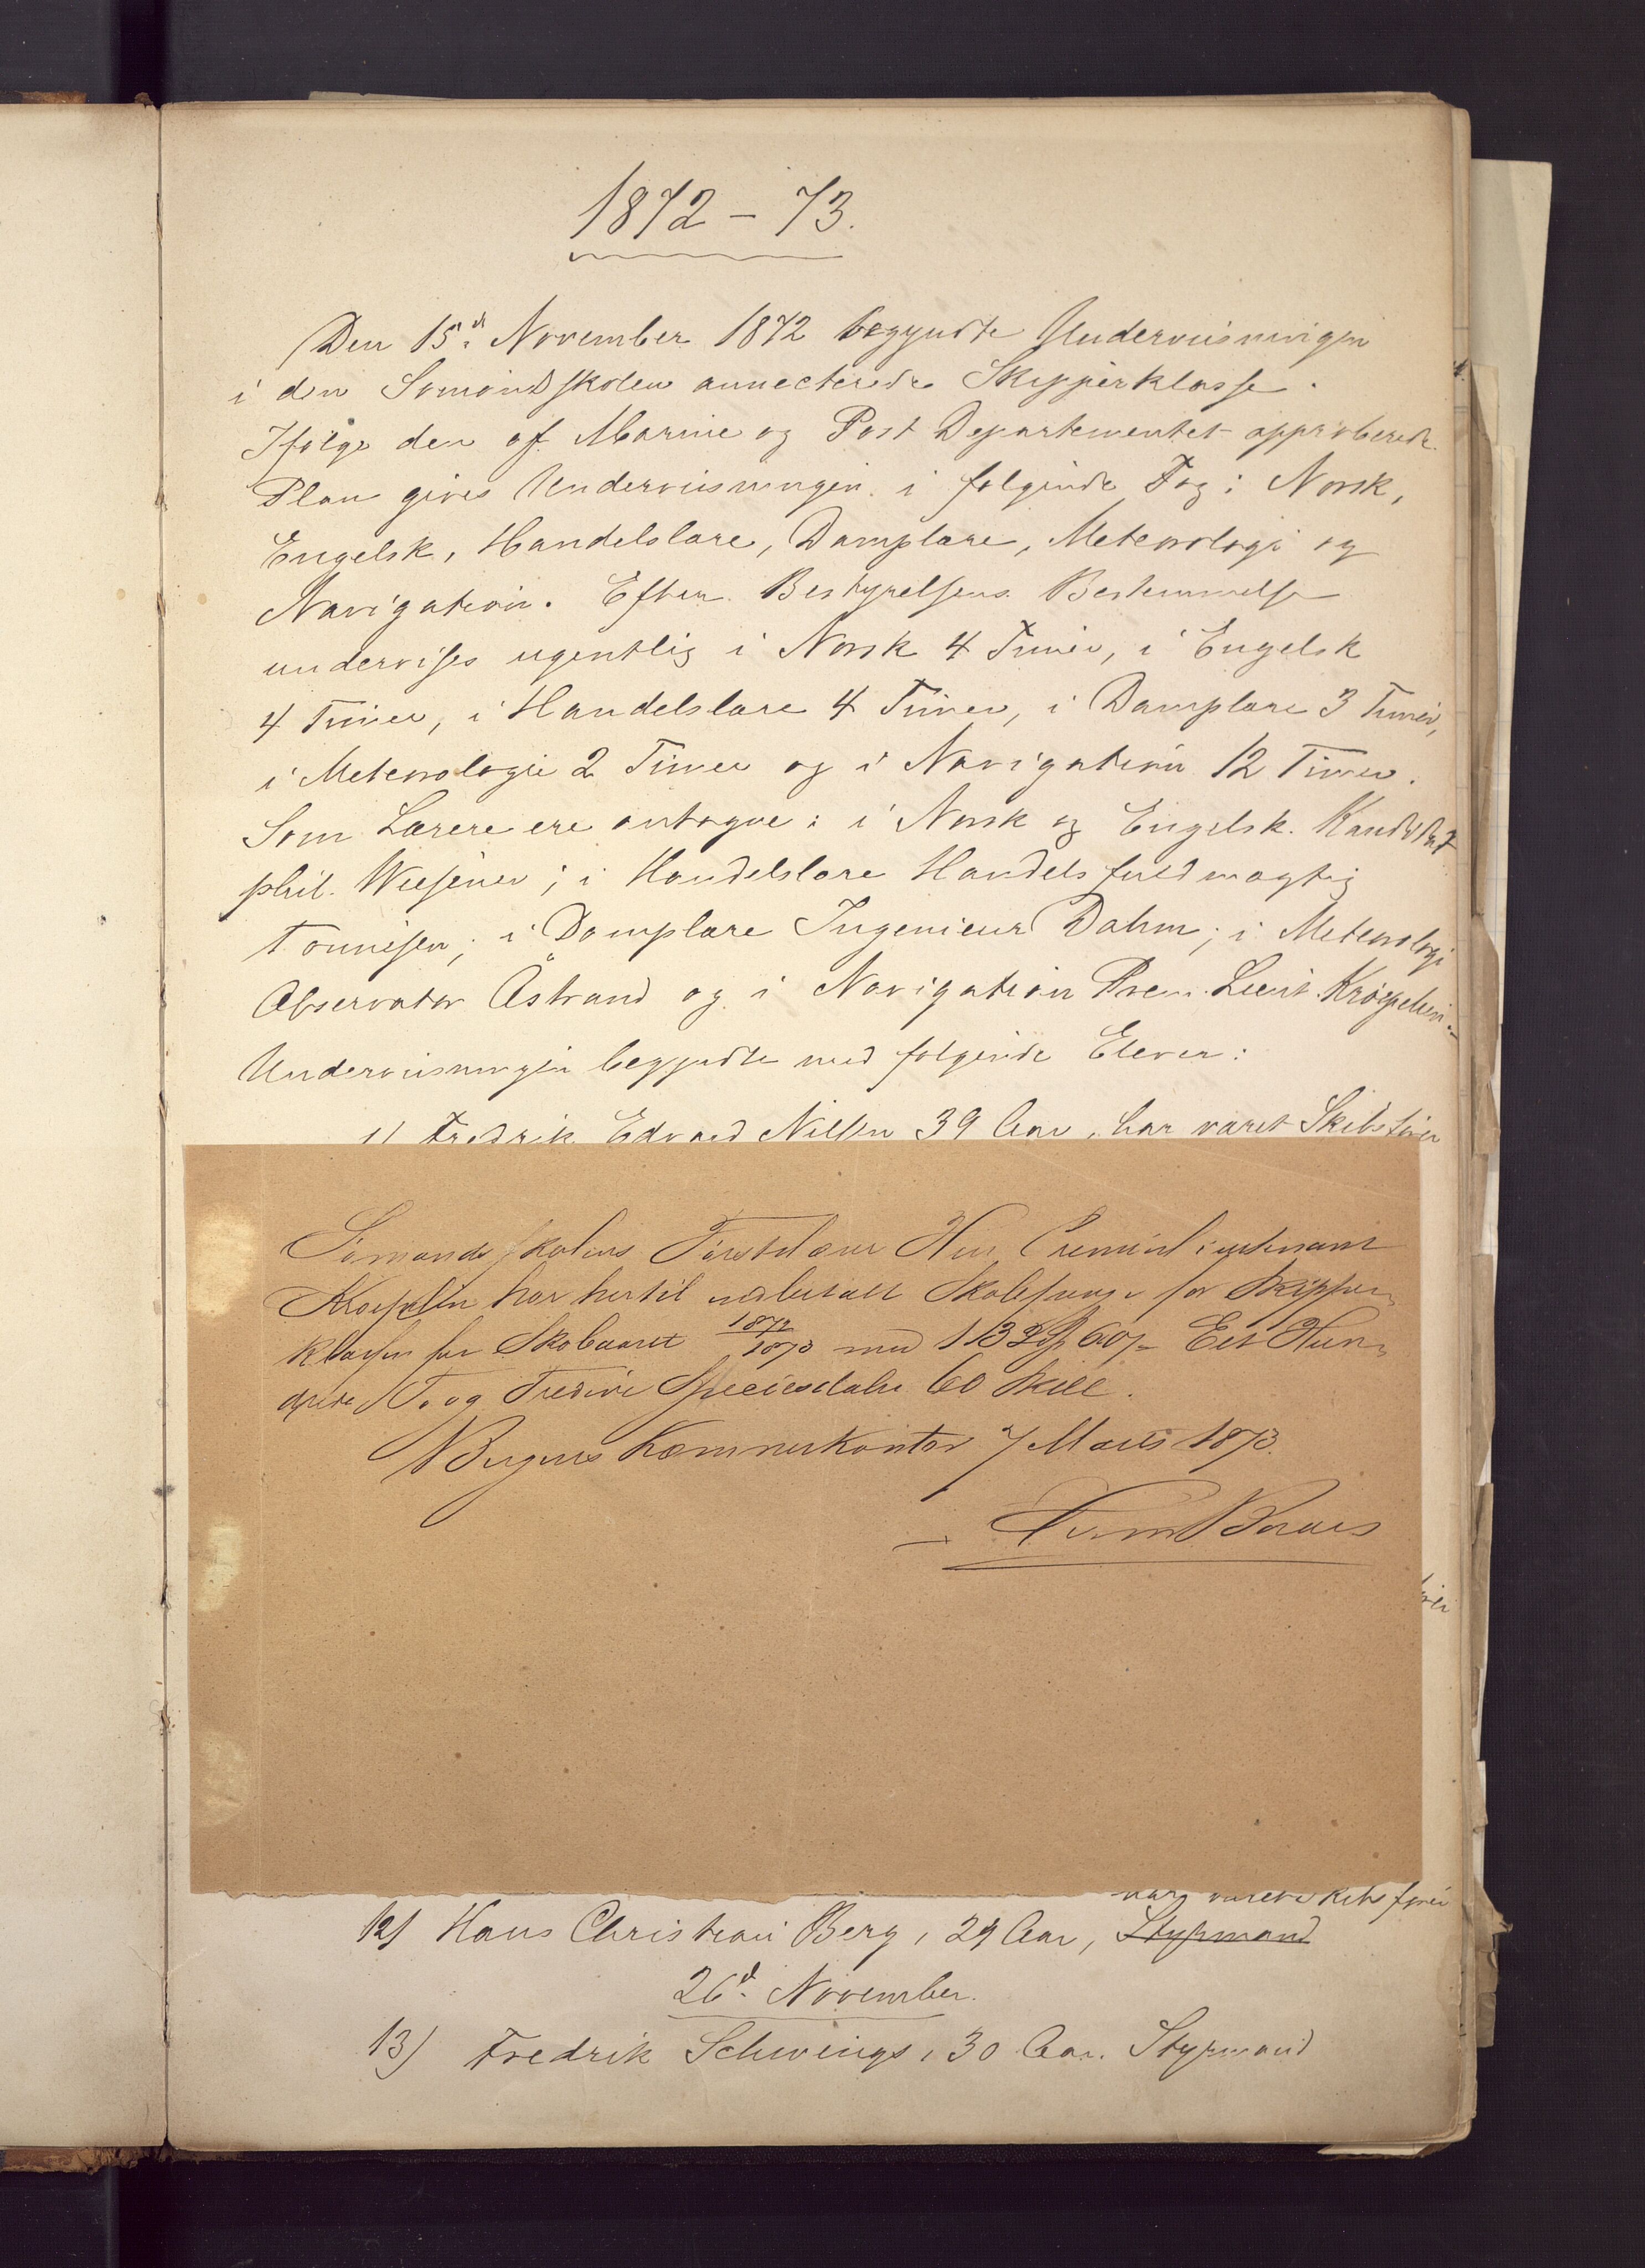 1872 – 73.
Den 15d November 1872 begyndte Underviisningen
i den Sømandsskolen annecterede Skipperklasse.
Ifølge den af Marine og Post Departementet approberede
Plan gives Underviisningen i følgende Fag: Norsk,
Engelsk, Handelslære, Damplære, Meteorologi og
Navigation. Efter Bestyrelsens Bestemmelse
undervises ugentlig i Norsk 4 Timer, i Engelsk
4 Timer, i Handelslære 4 Timer, i Damplære 3 Timer,
i Meteorologie 2 Timer og i Navigation 12 Timer.
Som Lærere ere antagne: i Norsk og Engelsk. Kandidat
phil. Wiesener; i Handelslære Handelsfuldmægtig
Tønnesen; i Damplære Ingenieur Dahm; i Meteorologi
Observator Åstrand og i Navigation Prem. Lieut. Kröepelien.
Underviisningen begyndte med følgende Elever:
1) Fredrik Edvard Nilsen 39 Aar, har været Skibsfører
Sømandsskolens Førstelærer Herr Premierlieutenant
Kroepelin har hertil indbetalt Skolepenge for Skipper-
klassen for Skoleaaret 1872/1873 med 132 Spd 60 s. Eet Hun-
drede To og Tredive Speciesdaler 60 Skill.
Bergens Kæmnerkontor 7 Marts 1873.
12) Hans Christian Berg, 29 Aar, Styrmand
har været Skibsfører
26d November.
13) Fredrik Schwings, 30 Aar. Styrmand